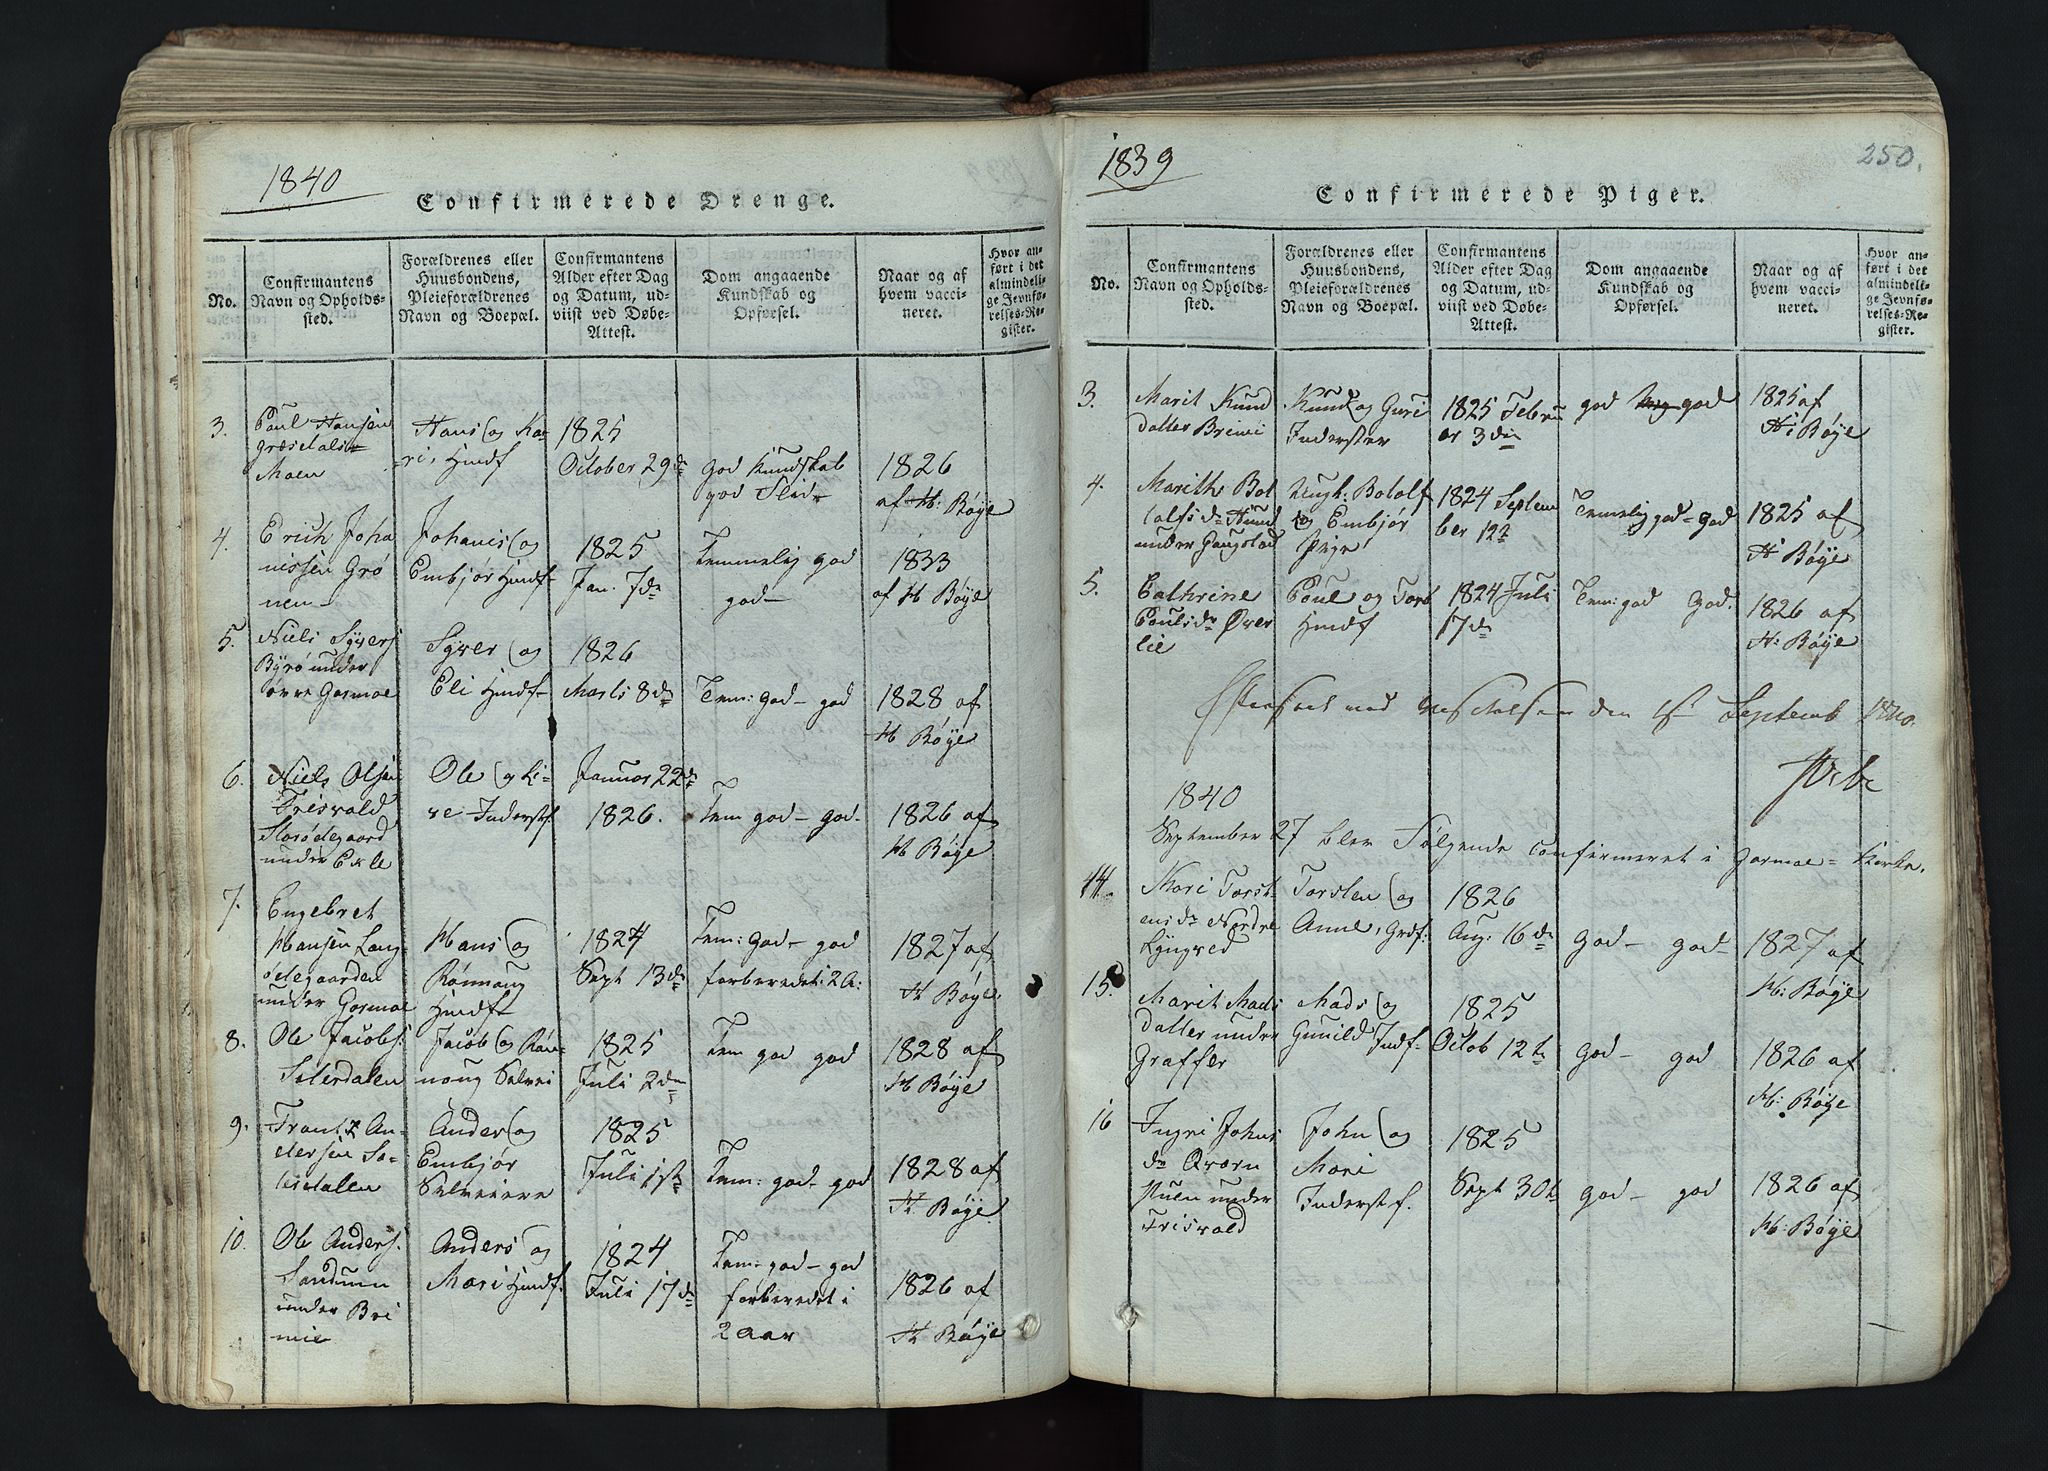 1840
Confirmerede Drenge.
No.
Confirmantens
Navn og Opholds-
sted.
Forældrenes eller
Huusbondens,
Pleieforældrenes
Navn og Boepæl.
Confirmantens
Alder efter Dag
og Datum, ud-
viist ved Døbe-
Attest.
Dom angaaende
Kundskab og
Opførsel.
Naar og af
hvem vacci-
neret.
Hvor an-
ført i det
almindeli-
ge Jevnfø-
relses-Re-
gister.
3.
Poul Hansen
Moen
Hans og Ka-
ri, Hmdf
1825
October 29de
god Kundskab
god Flid
1826
af H: Bøye
4.
Erich Joha
nissen Grø
nen
Johanis og
Embjør Hmdf
1825
Jan. 7de
Temmelig god
god
1833
af H Bøye
5.
Niels Syvers
Byrø under
øvre Garmoe
Syver og
Eli Hmdf
1826
Marts 8de
Tem: god - god
1828 af
H Bøye
6.
Niels Olsen
Frisvold
Storødegaard
under Ekle
Ole og Li-
ve Inderstf
Januar 22de
1826.
Tem god - god
1826 af
H Bøye
7.
Engebret
Hansen Lang
ødegaarden
under Garmoe
Hans og
Rønnaug
Hmdf
1824
Sept 13de
Tem: god - god
forberedet i 2 A:
1827 af
H Bøye
8.
Ole Jacobs:
Solerdalen
Jacob og Røn-
naug Selvei
1825
Juli 2den
Tem god god
1828 af
H Bøye
9.
Frantz An-
dersen So-
Anders og
Embjør
Selveiere
1825
Juli 1ste
Tem: god - god
1828 af
H. Bøye
10.
Ole Anders:
Sandum
under Bri
mie
Anders og
Mari Hmdf.
1824
Juli 17de
Tem: god - god
forberedet i
2 Aar
1826 af
H Bøye
1839
250.
Confirmerede Piger.
No.
Confirmantens
Navn og Opholds-
sted.
Forældrenes eller
Huusbondens,
Pleieforældrenes
Navn og Boepæl.
Confirmantens
Alder efter Dag
og Datum, ud-
viist ved Døbe-
Attest.
Dom angaaende
Kundskab og
Opførsel.
Naar og af
hvem vacci-
neret.
Hvor an-
ført i det
almindeli-
ge Jevnfø-
relses-Re-
gister.
3.
Marit Knud
datter Brimi
Knud og Guri
Inderster
1825 Febru
ar 3die
god god
1825 af
H: Bøye
4.
Marith Bot
tolfsdr
under Gaugstad
Ungk: Botolf
og Embjør
Pige
1824 Septem
ber 12te
Temelig god - god
1825 af
H Bøye
5.
Cathrine
Poulsdr Øver
lie
Poul og Torb
Hmdf
1824 Juli
17de
Tem: god god.
1826 af
H: Bøye
Efterseet ved Visitatsen den 1ste Septemb 1840.
1840
September 27 blev Følgende confirmeret i Garmoe = Kirke.
14.
Mari Torst
ensdr Nordre
Lyngved
Torsten og
Anne, Grdf:
1826
Aug: 16de
god - god
1827 af
H: Bøye
15.
Marit Mads
datter under
Graffer
Mads og
Gunild Indf
1825
Octob 12te
god - god
1826 af
H: Bøye
16
Ingri Johns
dr Qværn
huen under
Frisvold
John og
Mari
Inderstf.
1825
Sept 30te
god - god
1826 af
H: Bøye